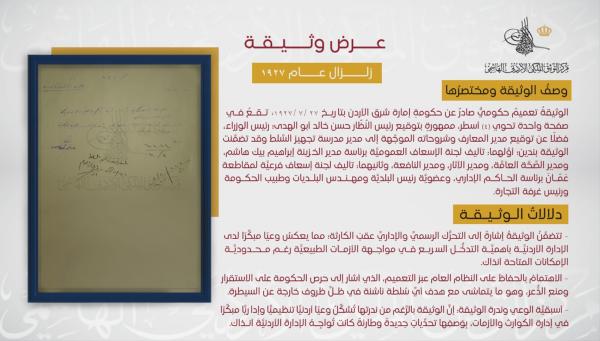 عرض وثيقة
زلزال عام ١٩٢٧
مركز التوثيق الملكي الأردني الهاشمي
وصف الوثيقة ومختصرها
الوثيقة تعميمٌ حكوميٌّ صادرٌ عن حكومة إمارة شرق الأردن بتاريخ ٢٧ /٧ /١٩٢٧، تقعُ في
صفحة واحدة تحوي (٤) أسطر، ممهورة بتوقيع رئيس النُّظّار حسن خالد أبو الهدى؛ رئيس الوزراء،
فضلًا عن توقيع مدير المعارف وشروحاته الموجَّهة إلى مدير مدرسة تجهيز السَّلط وقد تضمَّنت
الوثيقة بندين؛ أوَّلهما: تأليف لجنة الإسعاف العموميَّة برئاسة مدير الخزينة إبراهيم بيك هاشم،
ومدير الصّحَّة العامَّة، ومدير الآثار، ومدير النافعة، وثانيهما: تأليف لجنة إسعاف فرعيَّة لمقاطعة
عمَّان برئاسة الحاكم الإداري، وعضويَّة رئيس البلديَّة ومهندس البلديات وطبيب الحكومة
ورئيس غرفة التجارة.
دلالات الوثيقة
- تتضمَّنُ الوثيقة إشارةً إلى التحرُّك الرسميِّ والإداريِّ عقبَ الكارثة؛ مما يعكسُ وعيًا مبكّرًا لدى
الإدارة الأردنيَّة بأهميَّة التدخُّل السريع في مواجهة الأزمات الطبيعيَّة رغم محدوديَّة
الإمكانات المتاحة آنذاك.
- الاهتمامُ بالحفاظ على النظام العام عبر التعميم، الذي أشار إلى حرص الحكومة على الاستقرار
ومنع الذُّعر، وهو ما يتماشى مع هدف أيِّ سُلطة ناشئة في ظلِّ ظروف خارجة عن السيطرة.
- أسبقيَّة الوعي وندرة الوثيقة؛ إنَّ الوثيقة بالرَّغم من ندرتها تُشكِّلُ وعيًا أردنيًّا تنظيميًّا وإداريًّا مبكّرًا
في إدارة الكوارث والأزمات، بوصفها تحدّياتٍ جديدةً وطارئةً كانت تُواجهُ الإدارة الأردنيَّة آنذاك.